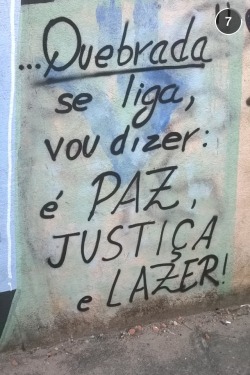 7
...Quebrada
se liga,
vou dizer:
é PAZ,
JUSTIÇA
e LAZER!